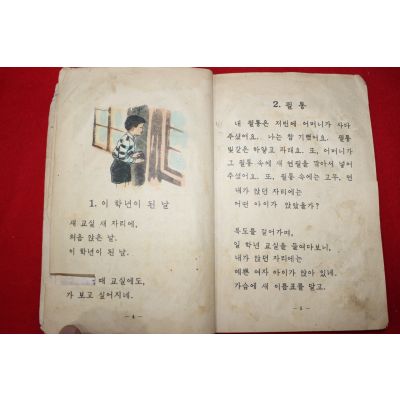 1. 이 학년이 된 날
새 교실 새 자리에,
처음 앉은 날.
이 학년이 된 날.
때 교실에도,
가 보고 싶어지네.
— 4 —
2. 필 통
내 필통은 저번에 어머니가 사다
주셨어요. 나는 참 기뻤어요. 필통
빛깔은 하얗고 파래요. 또, 어머니가
그 필통 속에 새 연필을 깎아서 넣어
주셨어요. 또, 필통 속에는 고무, 펜
내가 앉던 자리에는
어떤 아이가 앉았을가?
복도를 걸어가며,
일 학년 교실을 들여다보니,
내가 앉던 자리에는
예쁜 여자 아이가 앉아 있네.
가슴에 새 이름표를 달고.